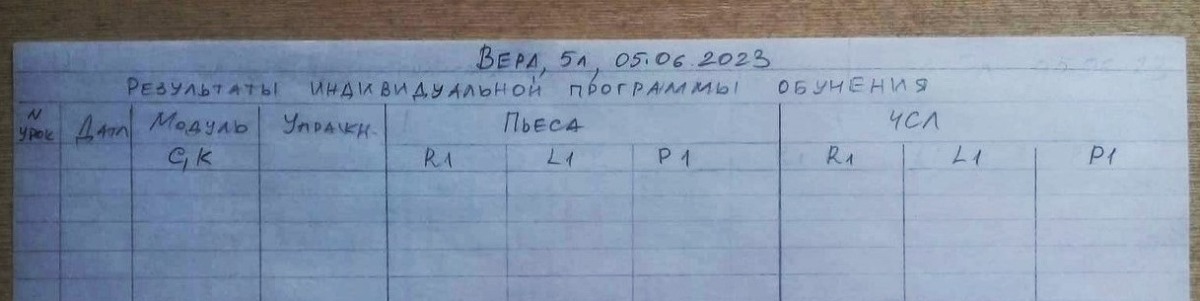 Вера, 5л, 05.06.2023
Результаты индивидуальной программы обучения
N урок Дата Модуль Упражн. Пьеса ЧСЛ
С, К R1 L1 P1 R1 L1 P1